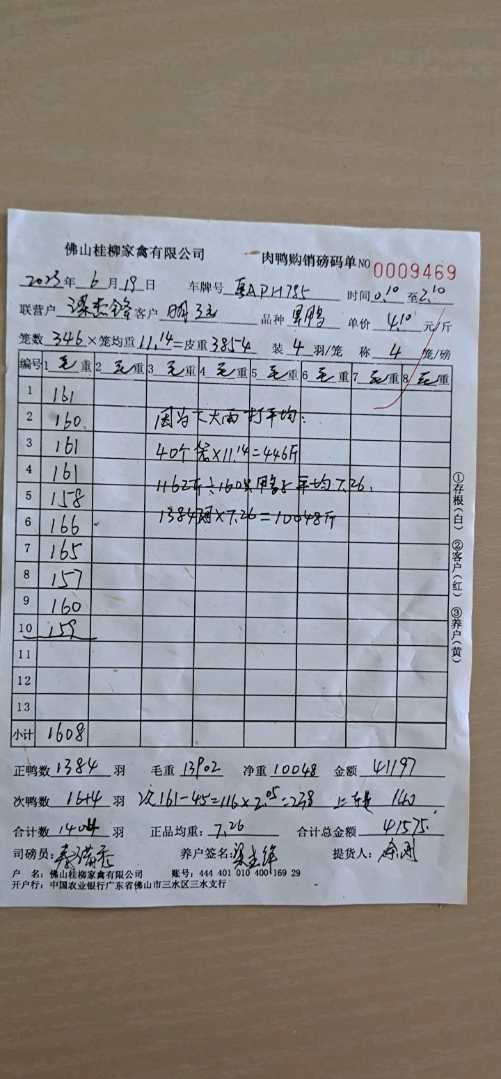 佛山桂柳家禽有限公司 肉鸭购销磅码单 NO 0009469
2023年6月19日 车牌号 APH785 时间0.10至2.10
联营户 客户 品种 单价 4.10 元/斤
笼数 346 ×笼均重 11.14 =皮重 3854 装 4 羽/笼 称 4 笼/磅
编号 1 毛 重 2 毛 重 3 毛 重 4 毛 重 5 毛 重 6 毛 重 7 毛 重 8 毛 重
1 161
2 160 因为下大雨打平均:
3 161 40个笼×11.14=446斤
4 161 1162斤÷160只 平均7.26.
5 158 1384 ×7.26=10048斤
6 166
7 165
8 157
9 160
10 159
11
12
13
小计 1608
①存根(白) ②客户(红) ③养户(黄)
正鸭数 1384 羽 毛重 13902 净重 10048 金额 41197
次鸭数 16+4 羽 次161-45=116×2.05=238 140
合计数 1404 羽 正品均重: 7.26 合计总金额 41575.
司磅员: 养户签名: 提货人:
户 名: 佛山桂柳家禽有限公司 账号: 444 401 010 400 169 29
开户行: 中国农业银行广东省佛山市三水区三水支行